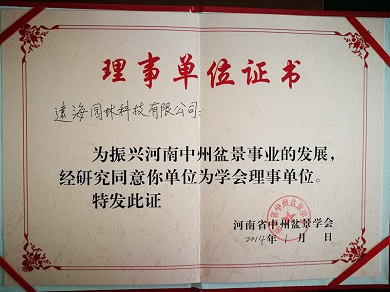 理事单位证书
远海园林科技有限公司:
为振兴河南中州盆景事业的发展,
经研究同意你单位为学会理事单位。
特发此证
河南省中州盆景学会
2014年1月 日